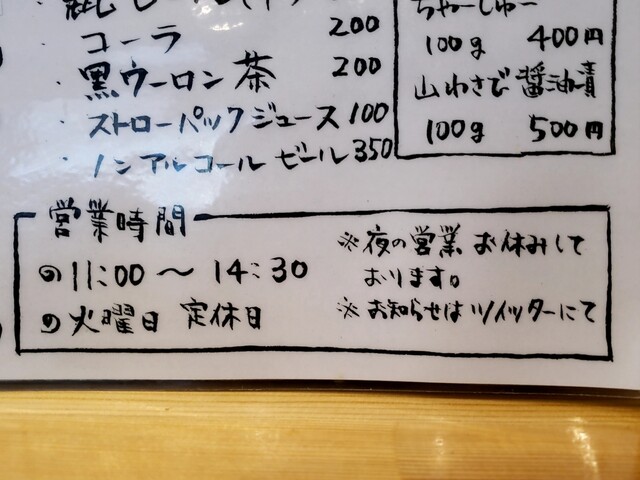 ・コーラ 200
・黒ウーロン茶 200
・ストローパックジュース 100
・ノンアルコールビール 350
ちゃーしゅー
100g 400円
山わさび醤油漬
100g 500円
営業時間
11:00～14:30
火曜日 定休日
※夜の営業お休みして
おります。
※お知らせはツイッターにて